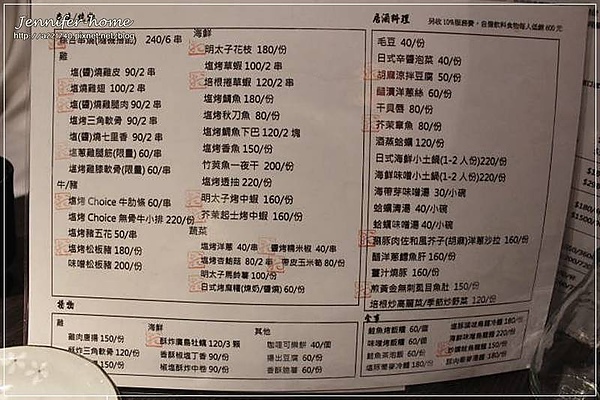 Jennifer-home
串燒/燒烤
240/6 串
雞
塩(醬)燒雞皮 90/2 串
塩燒雞翅 100/2 串
塩(醬)燒雞腿肉 90/2 串
塩烤三角軟骨 90/2 串
塩(醬)燒七里香 90/2 串
塩蔥雞腿筋(限量) 60/串
塩烤雞膝軟骨(限量) 60/串
牛/豬
塩烤 Choice 牛肋條 60/串
塩烤 Choice 無骨牛小排 220/串
塩烤豬五花 50/串
塩烤松板豬 180/份
味噌松板豬 200/份
海鮮
明太子花枝 180/份
塩烤草蝦 100/2 串
培根捲草蝦 120/2 串
塩烤鯖魚 180/份
塩烤秋刀魚 80/份
塩烤鯛魚下巴 120/2 塊
塩烤香魚 150/份
竹莢魚一夜干 200/份
塩烤透抽 220/份
明太子烤中蝦 160/份
芥茉起士烤中蝦 160/份
蔬菜
塩烤洋蔥 40/串 醬烤糯米椒 40/串
塩烤杏鮑菇 80/2 串 帶皮玉米筍 80/份
明太子馬鈴薯 100/份
日式烤麻糬(煉奶/醬燒) 60/份
居酒料理
另收 10%服務費，自備飲料食物每人低銷 600 元
毛豆 40/份
日式辛醬泡菜 40/份
胡麻涼拌豆腐 50/份
醋漬洋蔥絲 60/份
干貝唇 80/份
芥茉章魚 80/份
酒蒸蛤蠣 120/份
日式海鮮小土鍋(1-2 人份)220/份
海鮮味噌小土鍋(1-2 人份)220/份
海帶芽味噌湯 30/小碗
蛤蠣清湯 40/小碗
蛤蠣味噌湯 40/小碗
豚肉佐和風芥子(胡麻)洋蔥沙拉 160/份
醋洋蔥鱈魚肝 160/份
薑汁燒豚 160/份
煎黃金無刺虱目魚肚 150/份
培根炒高麗菜/季節炒野菜 120/份
揚物
雞
雞肉唐揚 150/份
酥炸三角軟骨 120/份
海鮮
酥炸廣島牡蠣 120/3 顆
香酥椒塩丁香 90/份
椒塩酥炸中卷 90/份
其他
咖哩可樂餅 40/個
揚出豆腐 60/份
香酥脆薯 60/份
食事
鮭魚烤飯糰 60/個
味噌烤飯糰 60/個
鮭魚茶泡飯 60/份